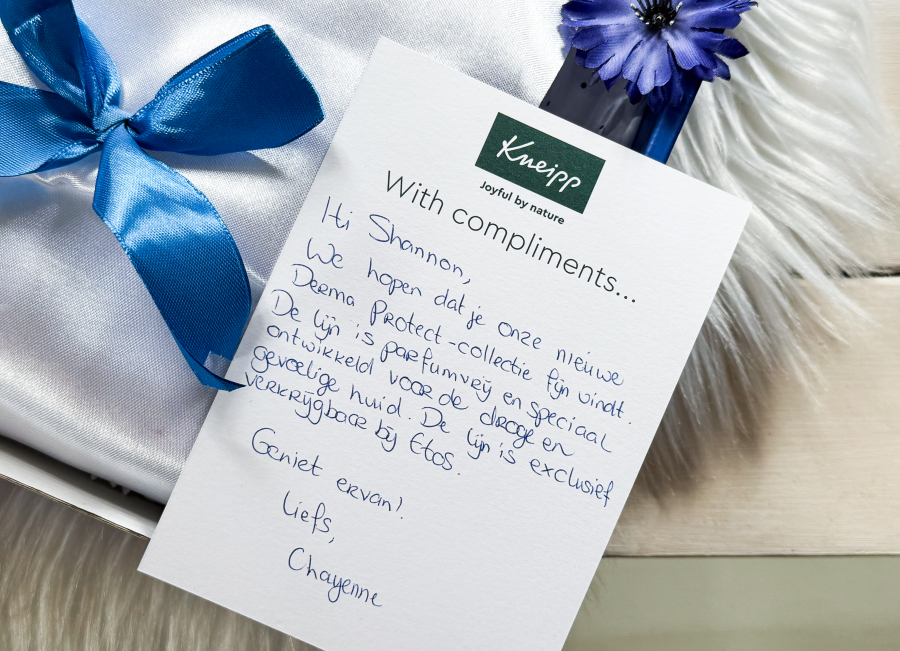 Kneipp
Joyful by nature
With compliments...
Hi Shannon,
We hopen dat je onze nieuwe
Derma Protect-collectie fijn vindt.
De lijn is parfumvrij en speciaal
ontwikkeld voor de droge en
gevoelige huid. De lijn is exclusief
verkrijgbaar bij Etos.
Geniet ervan!
Liefs,
Chayenne